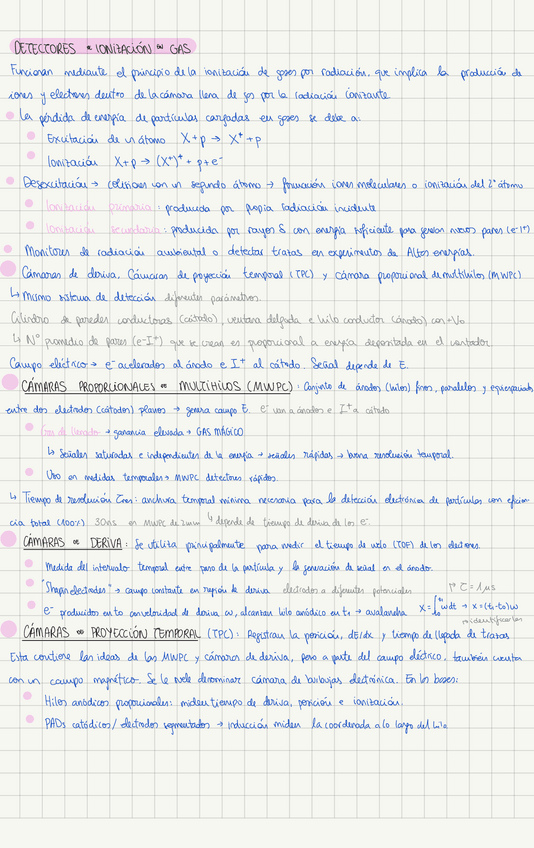 DETECTORES DE IONIZACIÓN EN GAS
Funcionan mediante el principio de la ionización de gases por radiación, que implica la producción de
iones y electrones dentro de la cámara llena de gas por la radiación ionizante.
La pérdida de energía de partículas cargadas en gases se debe a:
Excitación de un átomo X+p → X*+p
Ionización X+p → (X*)⁺ + p+e⁻
Desexcitación → colisiones con un segundo átomo → formación iones moleculares o ionización del 2º átomo
Ionización primaria: producida por propia radiación incidente
Ionización secundaria: producida por rayos δ con energía suficiente para generar nuevos pares (e-I⁺)
Monitores de radiación ambiental o detectar trazas en experimentos de Altas energías.
Cámaras de deriva, Cámaras de proyección temporal (TPC) y cámara proporcional de multihilos (MWPC)
↳ Mismo sistema de detección diferentes parámetros.
Cilindro de paredes conductoras (cátodo), ventana delgada e hilo conductor (ánodo) con +V₀
↳ Nº promedio de pares (e-I⁺) que se crean es proporcional a energía depositada en el contador
Campo eléctrico → e⁻ acelerados al ánodo e I⁺ al cátodo. Señal depende de E.
CÁMARAS PROPORCIONALES DE MULTIHILOS (MWPC): Conjunto de ánodos (hilos) finos, paralelos y equiespaciados
entre dos electrodos (cátodos) planos → genera campo E. e⁻ van a ánodos e I⁺ a cátodo
Gas de llenado → ganancia elevada → GAS MÁGICO
↳ Señales saturadas e independientes de la energía → señales rápidas → buena resolución temporal.
Uso en medidas temporales → MWPC detectores rápidos.
↳ Tiempo de resolución τres: anchura temporal mínima necesaria para la detección electrónica de partículas con eficien-
cia total (100%) 30ns en MWPC de 2mm ↳ depende de tiempo de deriva de los e⁻
CÁMARAS DE DERIVA: Se utiliza principalmente para medir el tiempo de vuelo (TOF) de los electrones.
Medida del intervalo temporal entre paso de la partícula y la generación de señal en el ánodo.
"Shape electrodes" → campo constante en región de deriva electrodos a diferentes potenciales τ = 1 μs
e⁻ producidos en t₀ con velocidad de deriva ω, alcanzan hilo anódico en t₁ → avalancha x = ∫ωdt → x = (t₁-t₀)ω
CÁMARAS DE PROYECCIÓN TEMPORAL (TPC): Registran la posición, dE/dx y tiempo de llegada de trazas
Esta contiene las ideas de las MWPC y cámaras de deriva, pero a parte del campo eléctrico, también cuenta
con un campo magnético. Se le suele denominar cámara de burbujas electrónica. En las bases:
Hilos anódicos proporcionales: miden tiempo de deriva, posición e ionización.
PADs catódicos / electrodos segmentados → inducción miden la coordenada a lo largo del hilo